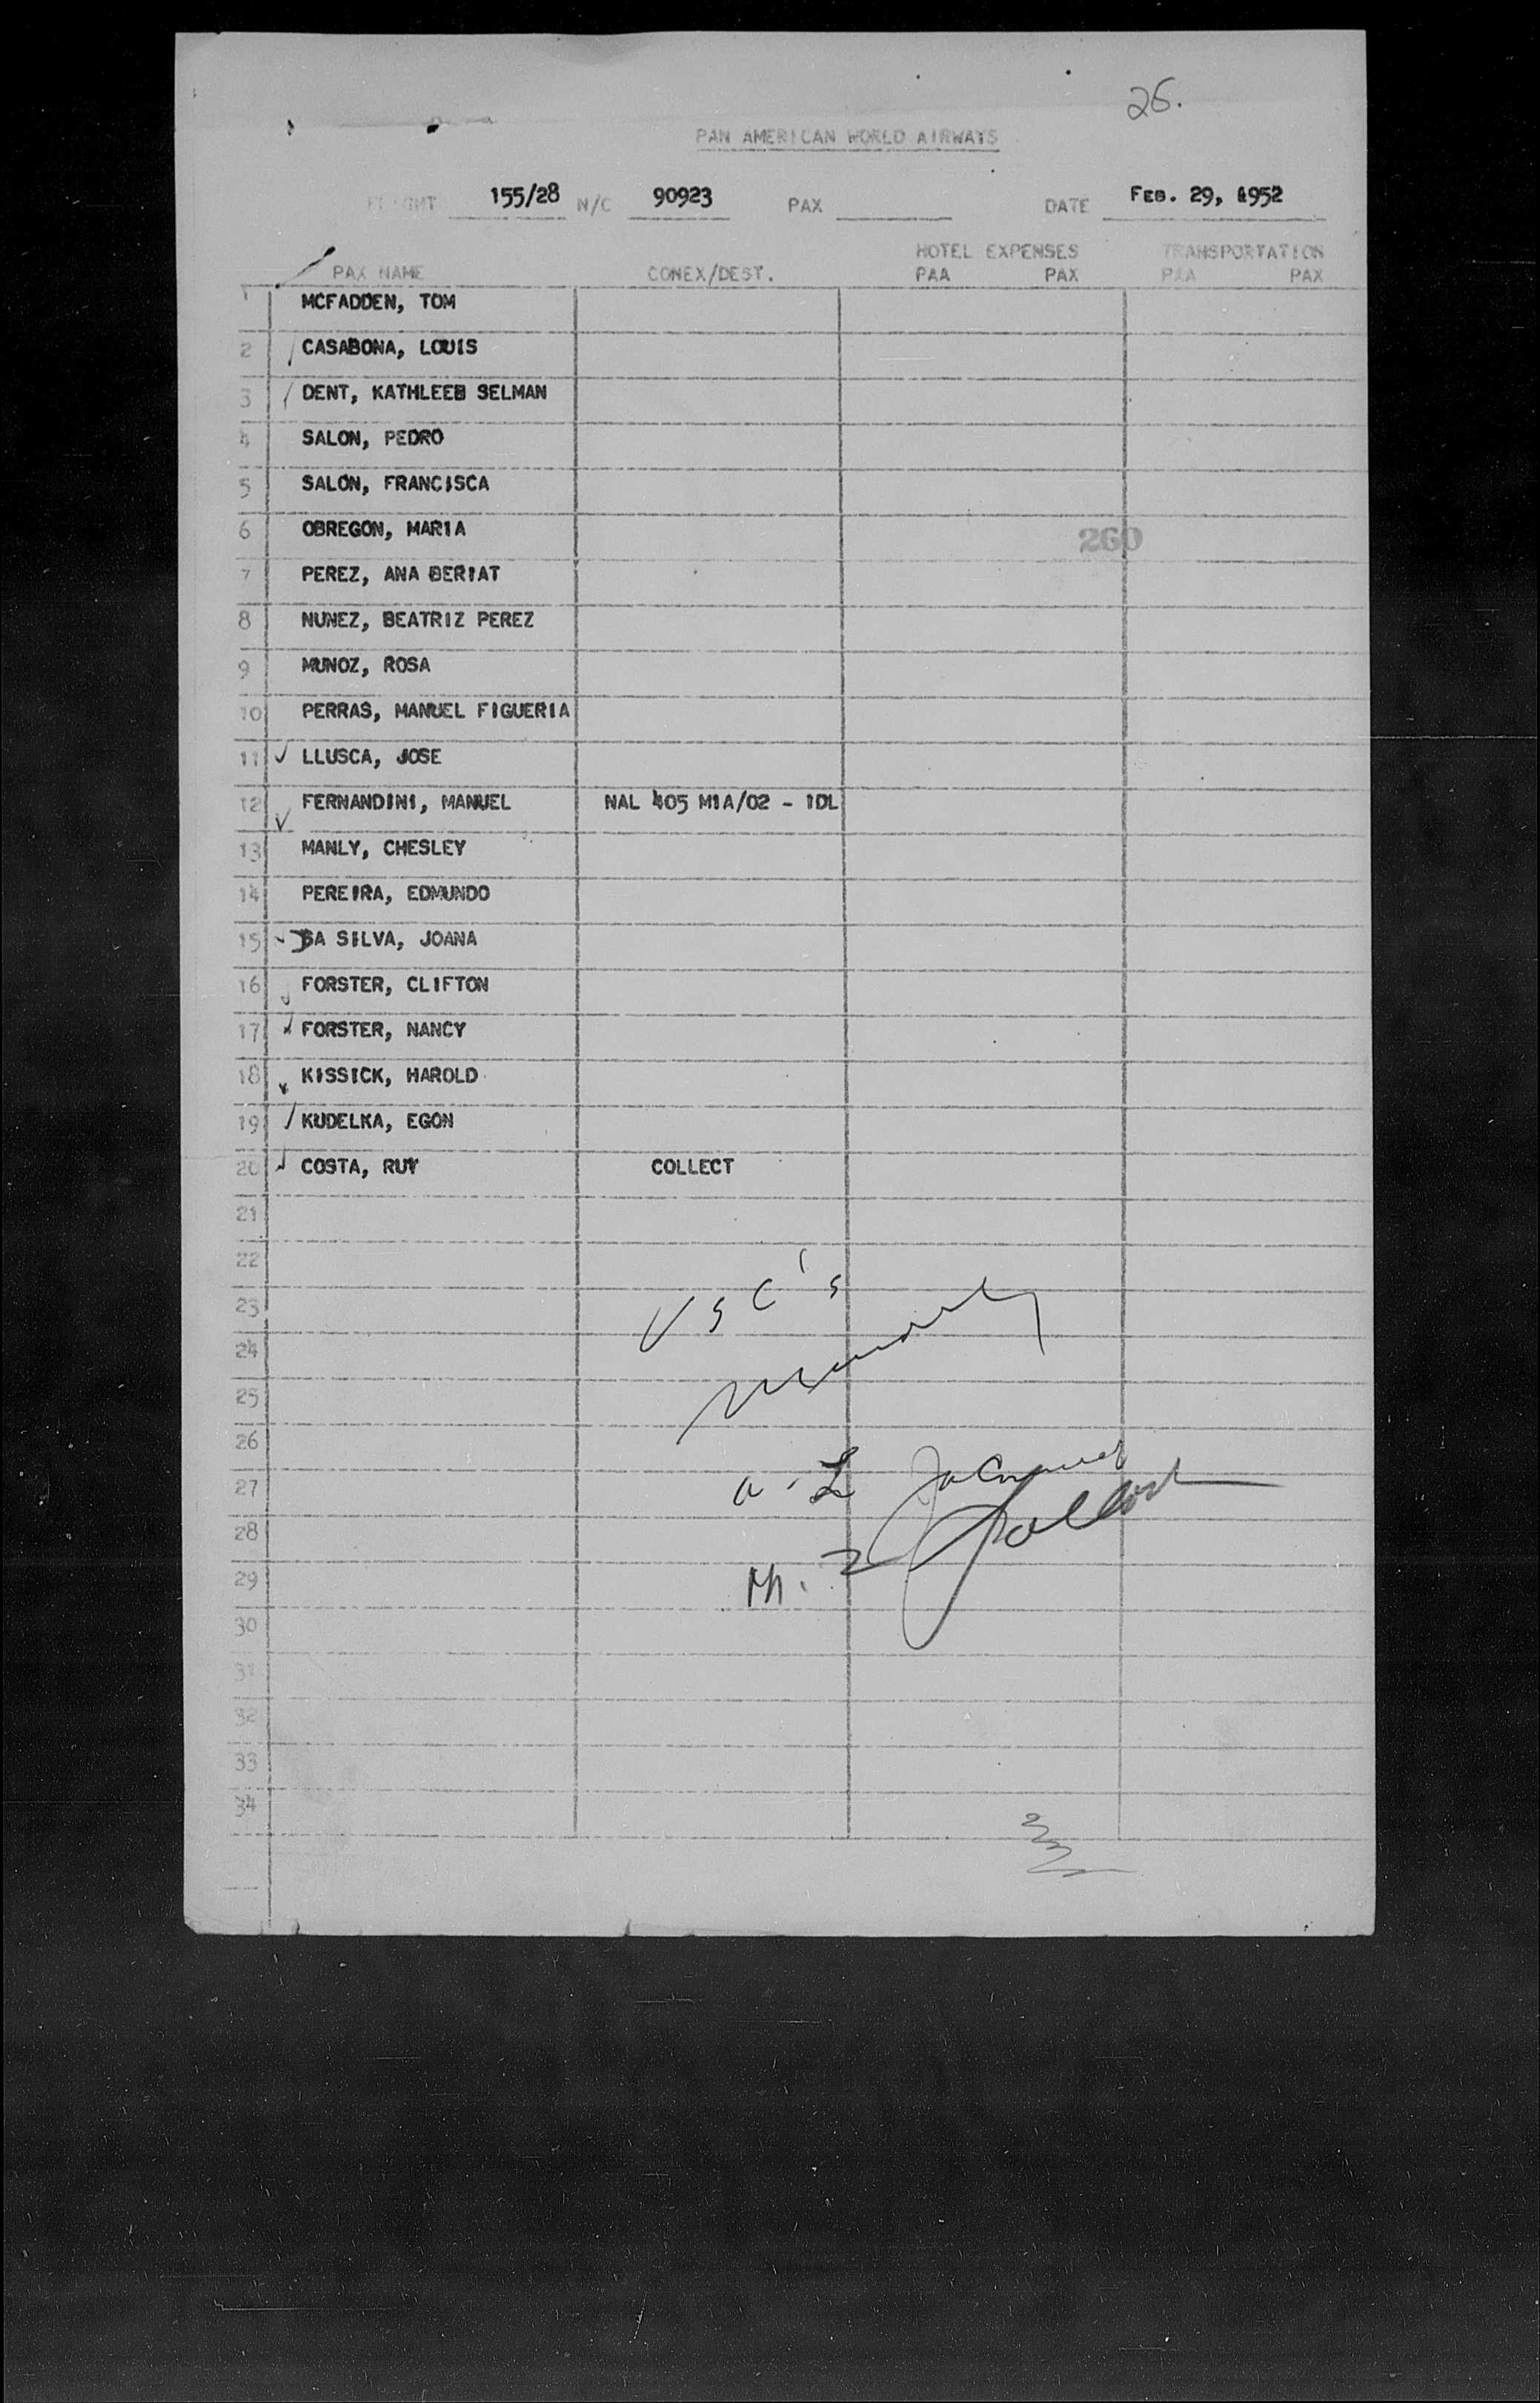 26.
PAN AMERICAN WORLD AIRWAYS
FLIGHT 155/28 N/C 90923 PAX DATE FEB. 29, 1952
HOTEL EXPENSES TRANSPORTATION
PAX NAME CONEX/DEST. PAA PAX PAA PAX
1 MCFADDEN, TOM
2 CASABONA, LOUIS
3 DENT, KATHLEEB SELMAN
4 SALON, PEDRO
5 SALON, FRANCISCA
6 OBREGON, MARIA
260
7 PEREZ, ANA BERIAT
8 NUNEZ, BEATRIZ PEREZ
9 MUNOZ, ROSA
10 PERRAS, MANUEL FIGUERIA
11 LLUSCA, JOSE
12 FERNANDINI, MANUEL NAL 405 MIA/02 - IDL
13 MANLY, CHESLEY
14 PEREIRA, EDMUNDO
15 SA SILVA, JOANA
16 FORSTER, CLIFTON
17 FORSTER, NANCY
18 KISSICK, HAROLD
19 KUDELKA, EGON
20 COSTA, RUY COLLECT
21
22
23 USC's
24
25
26
27 a. L
28
29 M. Z
30
31
32
33
34